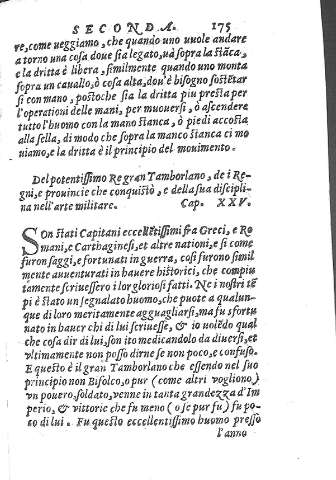 SECONDA. 175
re, come ueggiamo, che quando uno uuole andare
a torno una cosa doue sia legato, ua sopra la stãca,
e la dritta è libera, similmente quando uno monta
sopra un cauallo, ò cosa alta, dou'è bisogno sostẽtar
si con mano, postoche sia la dritta piu presta per
l'operationi delle mani, per muouersi, ò ascendere
tutto l'huomo con la mano stanca, ò piedi accosta
alla sella, di modo che sopra la manco stanca ci mo
uiamo, e la dritta è il principio del mouimento.
Del potentissimo Re gran Tamborlano, de i Re-
gni, e prouincie che conquistò, e della sua discipli-
na nell'arte militare. Cap. XXV.
SOn stati Capitani eccellẽtissimi fra Greci, e Ro
mani, e Carthaginesi, et altre nationi, e si come
furon saggi, e fortunati in guerra, cosi furono simil
mente auuenturati in hauere historici, che compiu
tamente scriuessero i lor gloriosi fatti. Ne i nostri tẽ
pi è stato un segnalato huomo, che puote a qualun-
que di loro meritamente agguagliarsi, ma fu sfortu
nato in hauer chi di lui scriuesse, & io uolẽdo qual
che cosa dir di lui, son ito medicandolo da diuersi, et
vltimamente non posso dirne se non poco, e confuso.
E questo è il gran Tamborlano che essendo nel suo
principio non Bifolco, o pur (come altri vogliono)
vn pouero soldato, venne in tanta grandezza d'Im
perio, & vittorie che fu meno (o se pur fu) fu po-
co di lui. Fu questo eccellentissimo huomo presso
l'anno